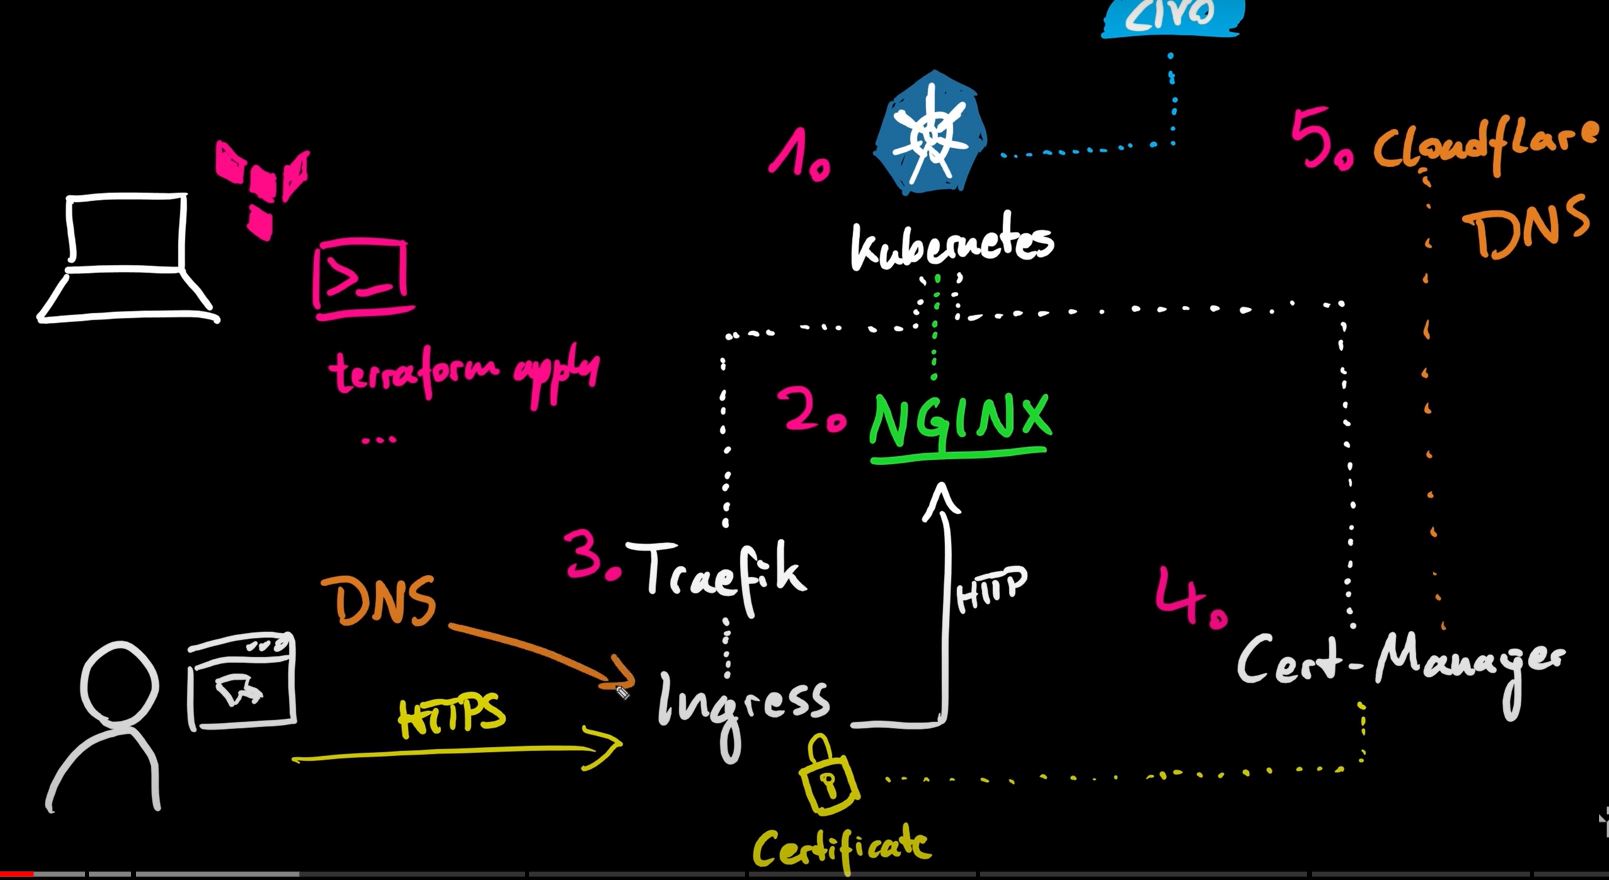 civo
1.
Kubernetes
5. Cloudflare
DNS
>_
terraform apply
...
2. NGINX
3. Traefik
HTTP
4.
Cert-Manager
DNS
Ingress
HTTPS
Certificate